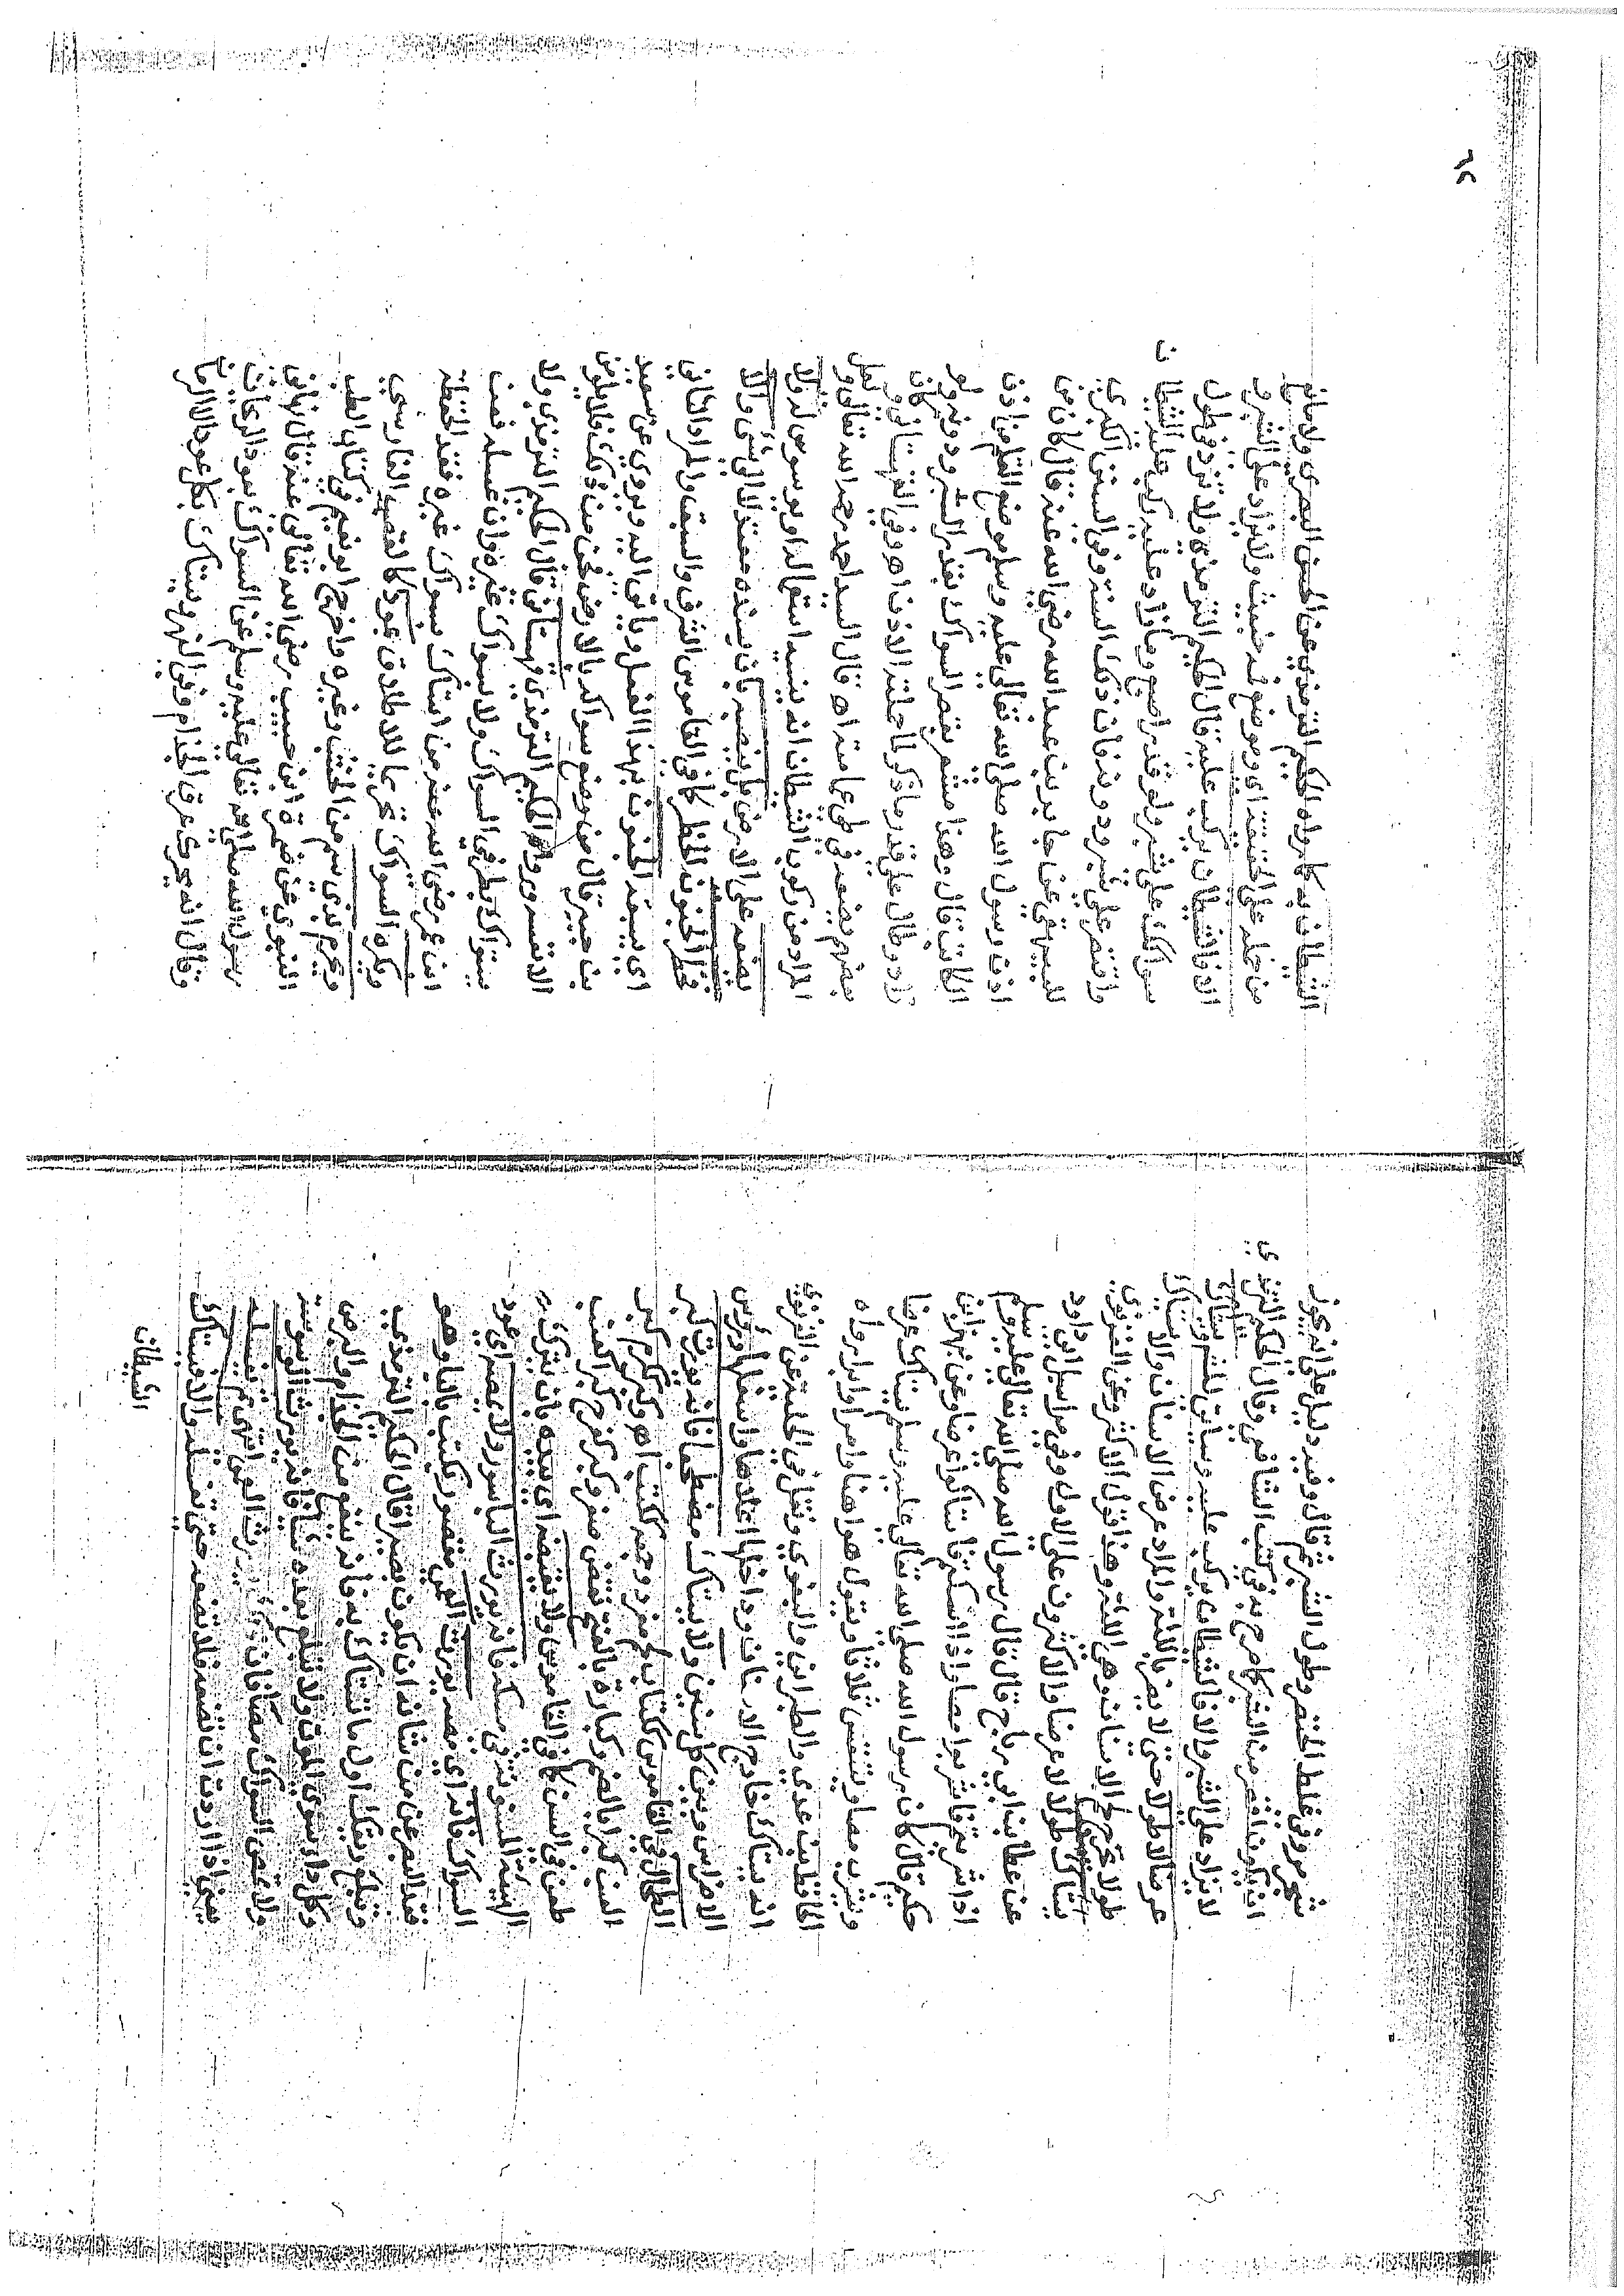 شبر وفي غلظ الخنصر وطول الشبر ثم قال وفيه دليل على انه يجوز
ان يكون اقصر من الشبر كما صرح به في كتب الشافعي وقال الحكيم الترمذي
لا يزاد على الشبر والا فالشيطان يركب عليه وسياتي
عرضا لا طولا حتى لا يضر باللثة والمراد عرض الاسنان والا
طولا الاسنان وهي اللثة وهذا قول الاكثر وعن الغزنوي
يستاك طولا لا عرضا والاكثرون على الاول وفي مراسيل ابي داود
عن عطا بن ابي رباح قال قال رسول الله صلى الله تعالى عليه وسلم
اذا شربتم فاشربوا مصا واذا استكتم فاستاكوا عرضا وعن بهز بن
حكيم قال كان رسول الله صلى الله تعالى عليه وسلم يستاك عرضا
ويشرب مصا ويتنفس ثلاثا ويقول هو اهنا وامرا وابرا رواه
الحافظ ابن عدي والطبراني والبغوي ونقل في الحلية عن الغزنوي
انه يستاك خارج الاسنان وداخلها اعلاها واسفلها ورؤس
الاضراس وبين كل سنين ولا يستاك مضطجعا فانه يورث كبر
الطحال في القاموس ككتاب لحم وجمعه ككتب اهـ وكبر ككرم كبر
السن كبرا بالضم وكبارة بالفتح نقيض صغر وكبر كفرح كبرا كعنب
طعن في السن كما في القاموس ولا يقبضه اي بيده بان يترك
الهيئة المسنونة في مسكه فانه يورث الباسور ولا يمصه اي عود
السواك فانه اي مصه يورث العمى مقصور يكتب باليا وهو
فقد البصر عن من شانه ان يكون بصيرا قال الحكيم الترمذي
وابلع ريقك اول ما تستاك به فانه ينفع من الجذام والبرص
وكل داء سوى الموت ولا تبلع بعده شيئا فانه يورث الوسوسة
ولا تمص السواك مصا فان ذلك يورث العمى انتهى ثم يغسله
يعني اذا اردت ان تضعه فلا تضعه حتى تغسله والا فيستاك
الشيطان
٦٢
الشيطان به كما رواه الحكيم الترمذي عن الحسن البصري ولا مانع
من حمله على الحقيقة اي وموضوفه خبيث ولا يزاد على الشبر و
الا فالشيطان يركب عليه قال الحكيم الترمذي ولا تزد في طول
سواكك على شبر ولو قدر اصبع وما زاد عليه ركب عليه الشيطان
واقتصر على شبر ودونه فان ذلك السنة وفي السنن الكبرى
للبيهقي عن جابر بن عبد الله رضي الله عنه قال كان من
اذن رسول الله صلى الله تعالى عليه وسلم موضع القلم من اذن
الكاتب قال وهذا مشعر بقصر السواك بقدر الشبر ودونه ولو
زاد وطال على قدر ما ذكر لما حملته الاذن اهـ وفي القهستاني و
بعضهم يضعه في طي عمامته اهـ قال السيد احمد رحمه الله تعالى و
المراد من ركوب الشيطان انه ينسيه استعماله او يوسوس له ولا
يضعه على الارض بل ينصبه بان يسنده معتمدا لا الى شئ والا
فخطر الجنون الخطر كما في القاموس الشرف والسبق والمراد الثاني
اي يسبقه الجنون بهذا الفعل وياتي اليه ويروى عن سعيد
بن جبير قال من وضع سواكه بالارض فجن من ذلك فلا يلومن
الا نفسه رواه الحكيم الترمذي قهستاني قال الحكيم الترمذي ولا
يستواك بطرفي السواك ولا بسواك غيره وان غسله فعن
ابن عمر رضي الله عنه من استاك بسواك غيره فقد الحفظ
ويكره السواك تحريما للاطلاق بموذ كالقصب الفارسي
ويحرم بذي سم من الخشب وغيره واخرج ابو نعيم في كتاب الطب
النبوي عن ضمرة ابن حبيب رضي الله تعالى عنه قال نهانا
رسول الله صلى الله تعالى عليه وسلم عن السواك بعود الريحان
وقال انه يحرك عرق الجذام وفي النهر ويستاك بكل عود الا الرمان